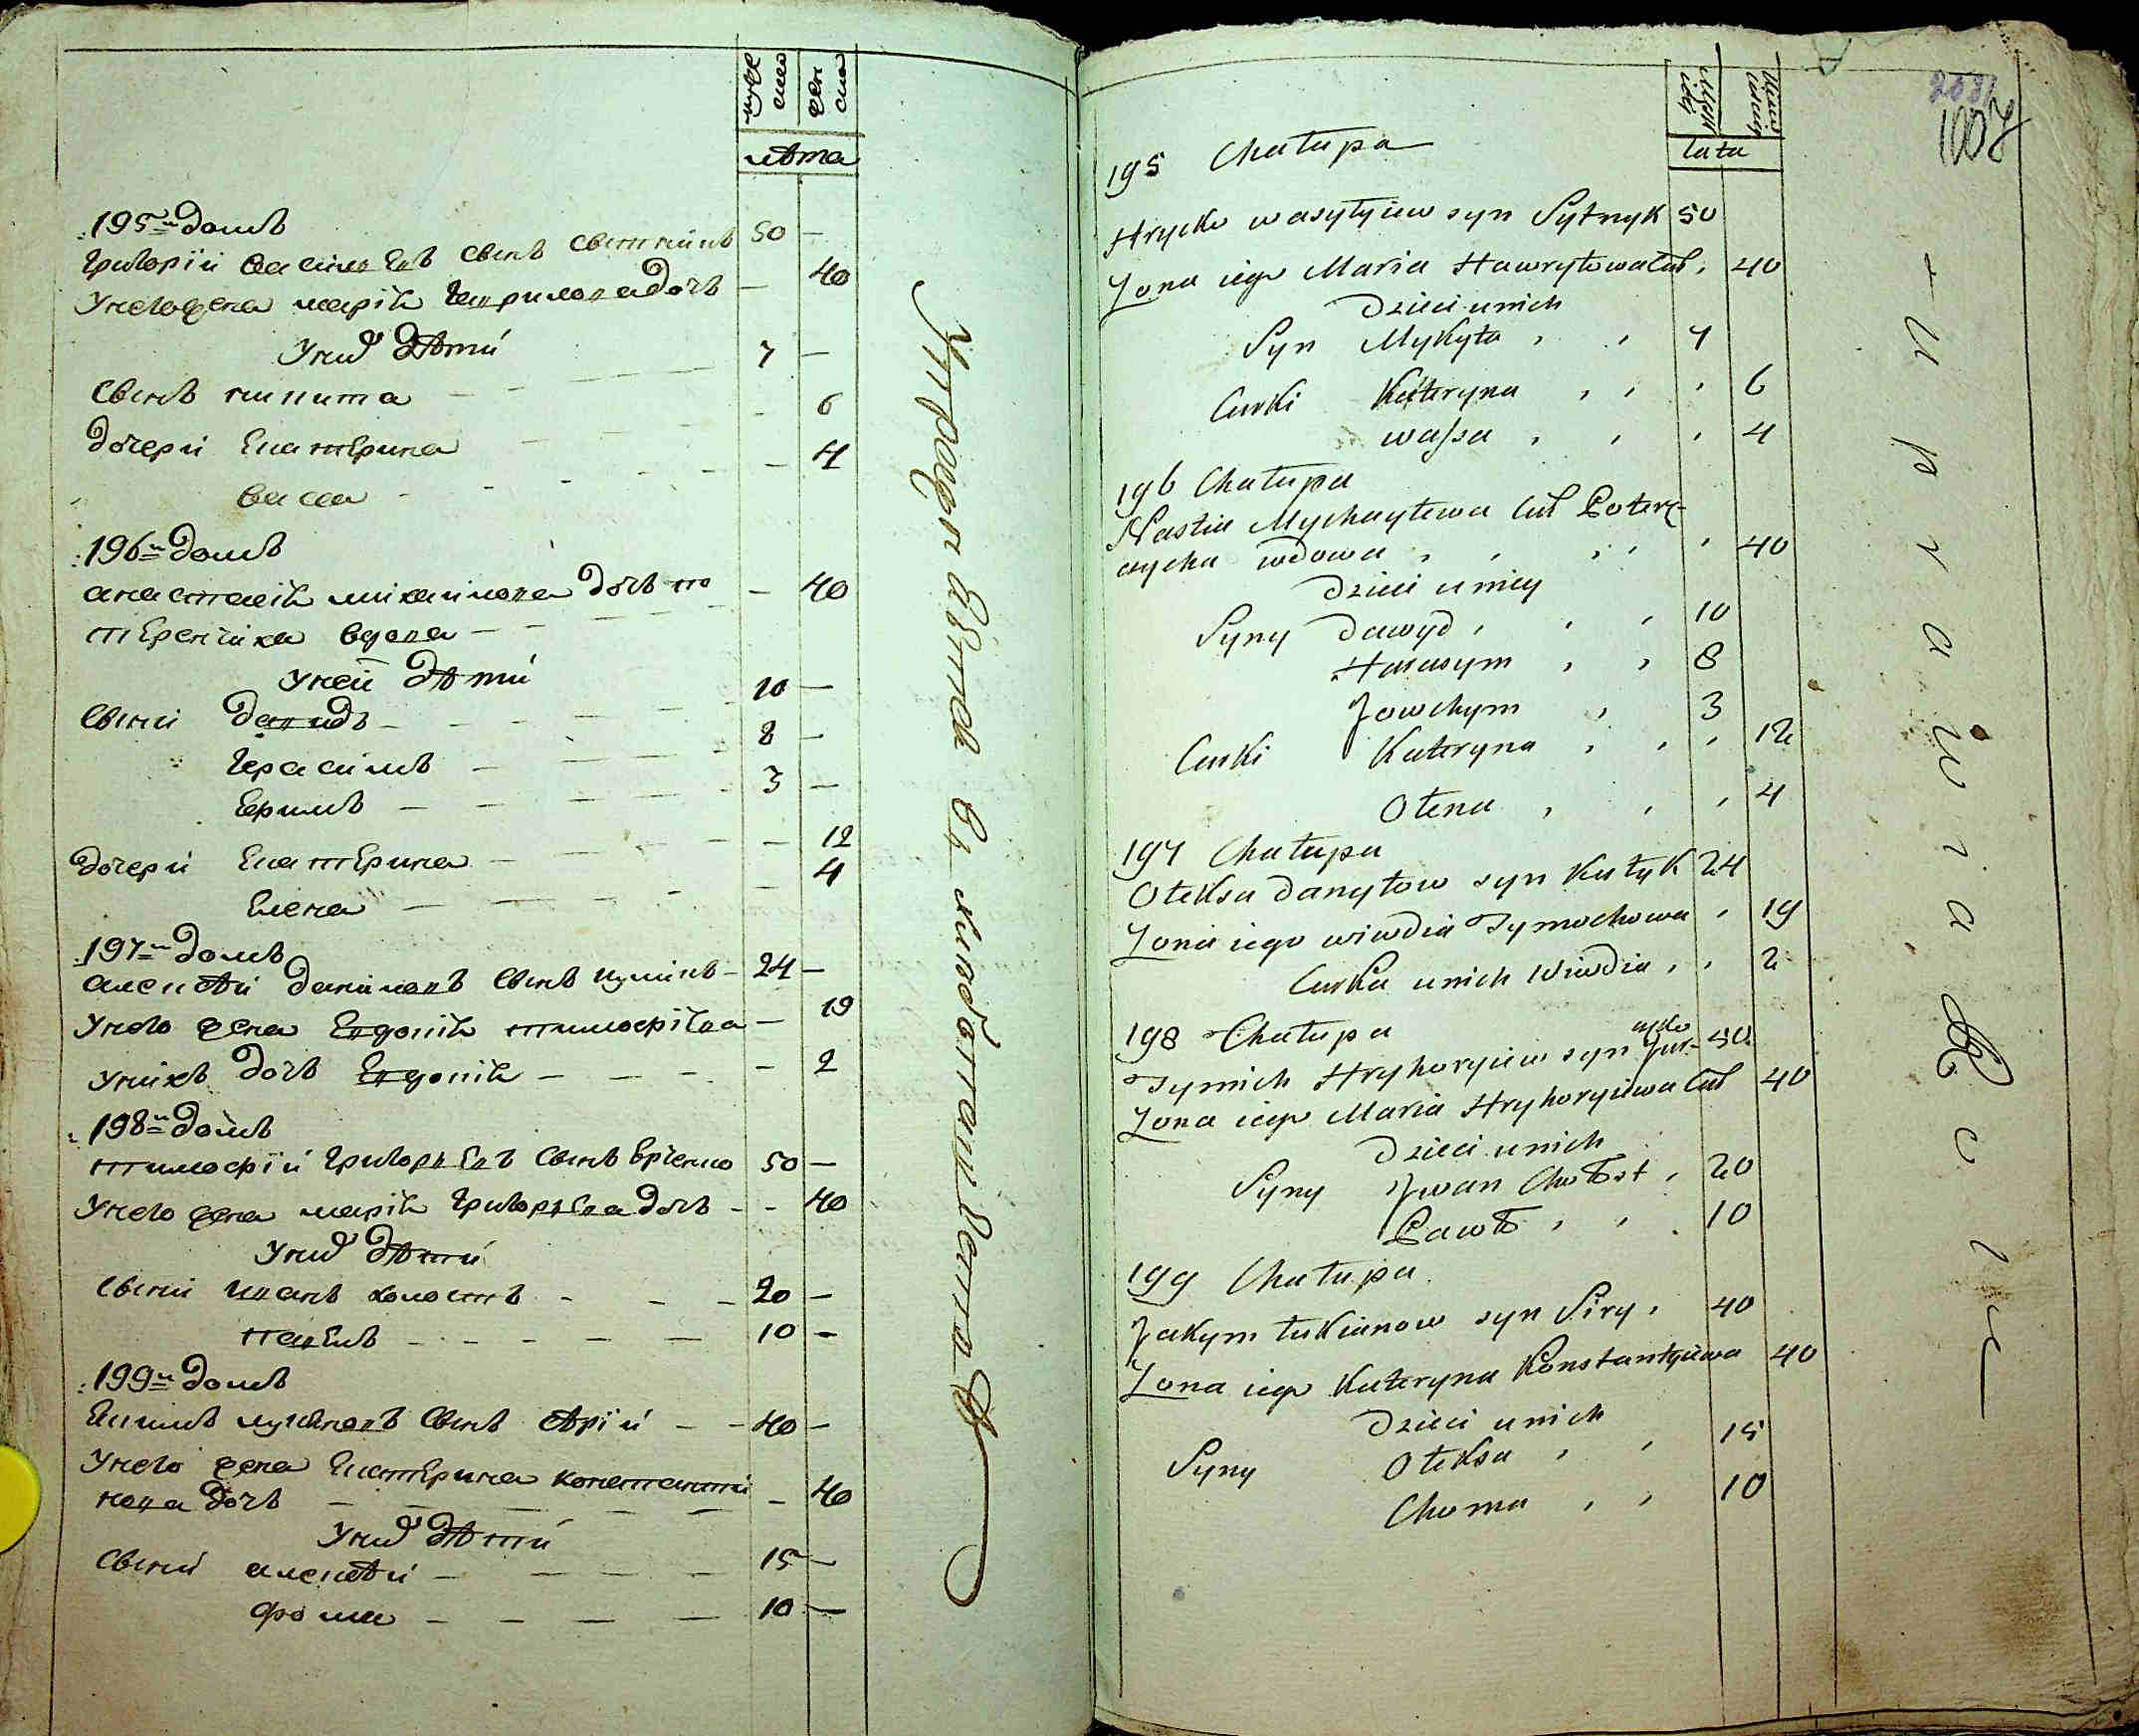 муже
ско
жен
ска
лѣта
195й домъ
Григорій василевъ сынъ сытникъ 50 —
Унего жена марія гаврилова дочь — 40
Унихъ дѣти
сынъ никита — — 7 —
дочери Екатерина — — 6
васса — — 4
196й домъ
анастасія михайлова дочь по
терчиха вдова — — 40
Уней дѣти
сыни давидъ — — 10 —
герасимъ — — 8 —
Ефимъ — — 3 —
дочери Екатерина — — 12
Елена — — 4
197й домъ
алексѣй даниловъ сынъ куликъ — 24 —
Унего жена Евдокія тимофѣева — 19
Унихъ дочь Евдокія — — 2
198й домъ
тимофій григорьевъ сынъ 50 —
Унего жена марія григорьева дочь — 40
Унихъ дѣти
сыни иванъ холостъ — — 20 —
павелъ — — 10 —
199й домъ
Екимъ лукяновъ сынъ сѣрій — 40 —
Унего жена Екатерина константи
нова дочь — — 40
Унихъ дѣти
сыни алексѣй — — 15 —
фома — — 10 —
195 Chałupa
lata
Hryćko wasylyiew syn Sytnyk 50
Żona iego Maria Hawryłowa cūl, 40
Dzieci unich
Syn Mykyta , , 7
Curki Kateryna , , , 6
wassa , , , 4
196 Chałupa
Nastia Mychayłowa cūl Poter-
czycha wdowa , , , , , 40
Dzieci u niey
Syny Dawyd , , , 10
Harasym , , 8
Jowchym , 3
Curki Kateryna , , , 12
Ołena , , , 4
197 Chałupa
Ołeksa Danyłow syn Kułyk 24
Żona iego wiwdia Tymochowa , 19
Curka unich Wiwdia , , 2
198 Chałupa
Tymich Hryhoryiew syn Jur- 50
Żona iego Maria Hryhoryiewa cūl 40
Dzieci unich
Syny Jwan Chołost , 20
Pawło , , 10
199 Chałupa
Jakym Łukianow syn Siry , 40
Żona iego Kateryna Konstantyiewa 40
Dzieci unich
Syny Ołeksa , , 15
Choma , , 10
1007